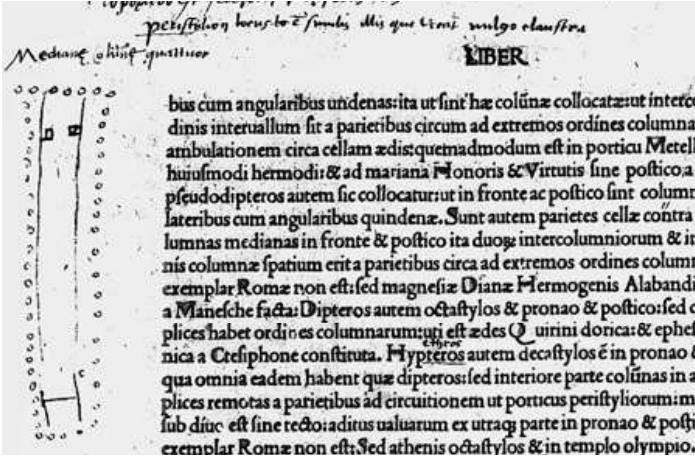 peristylion locus
Mediane colūne quattuor
LIBER
bus cum angularibus undenas: ita ut sint hæ colūnæ collocatæ: ut interco
dinis interuallum sit a parietibus circum ad extremos ordines columna
ambulationem circa cellam ædis: quemadmodum est in porticu Metell
huiusmodi hermodi: & ad mariana Honoris & Virtutis sine postico, a
pseudodipteros autem sic collocatur: ut in fronte ac postico sint column
lateribus cum angularibus quindenæ. Sunt autem parietes cellæ cōntra
lumnas medianas in fronte & postico ita duoꝝ intercolumniorum & in
nis columnæ spatium erit a parietibus circa ad extremos ordines column
exemplar Romæ non est: sed magnesiæ Dianæ Hermogenis Alabandi
a Manesche facta: Dipteros autem octastylos & pronao & postico: sed c
plices habet ordines columnarum: uti est ædes Quirini dorica: & ephef
nica a Ctesiphone constituta. Hypteros autem decastylos ē in pronao &
qua omnia eadem habent quæ dipteros: sed interiore parte colūnas in a
plices remotas a parietibus ad circuitionem ut porticus peristyliorum: m
sub diuo est sine tecto: aditus ualuarum ex utraqꝫ parte in pronao & posti
exemplar Romæ non est: Sed athenis octastylos & in templo olympio.